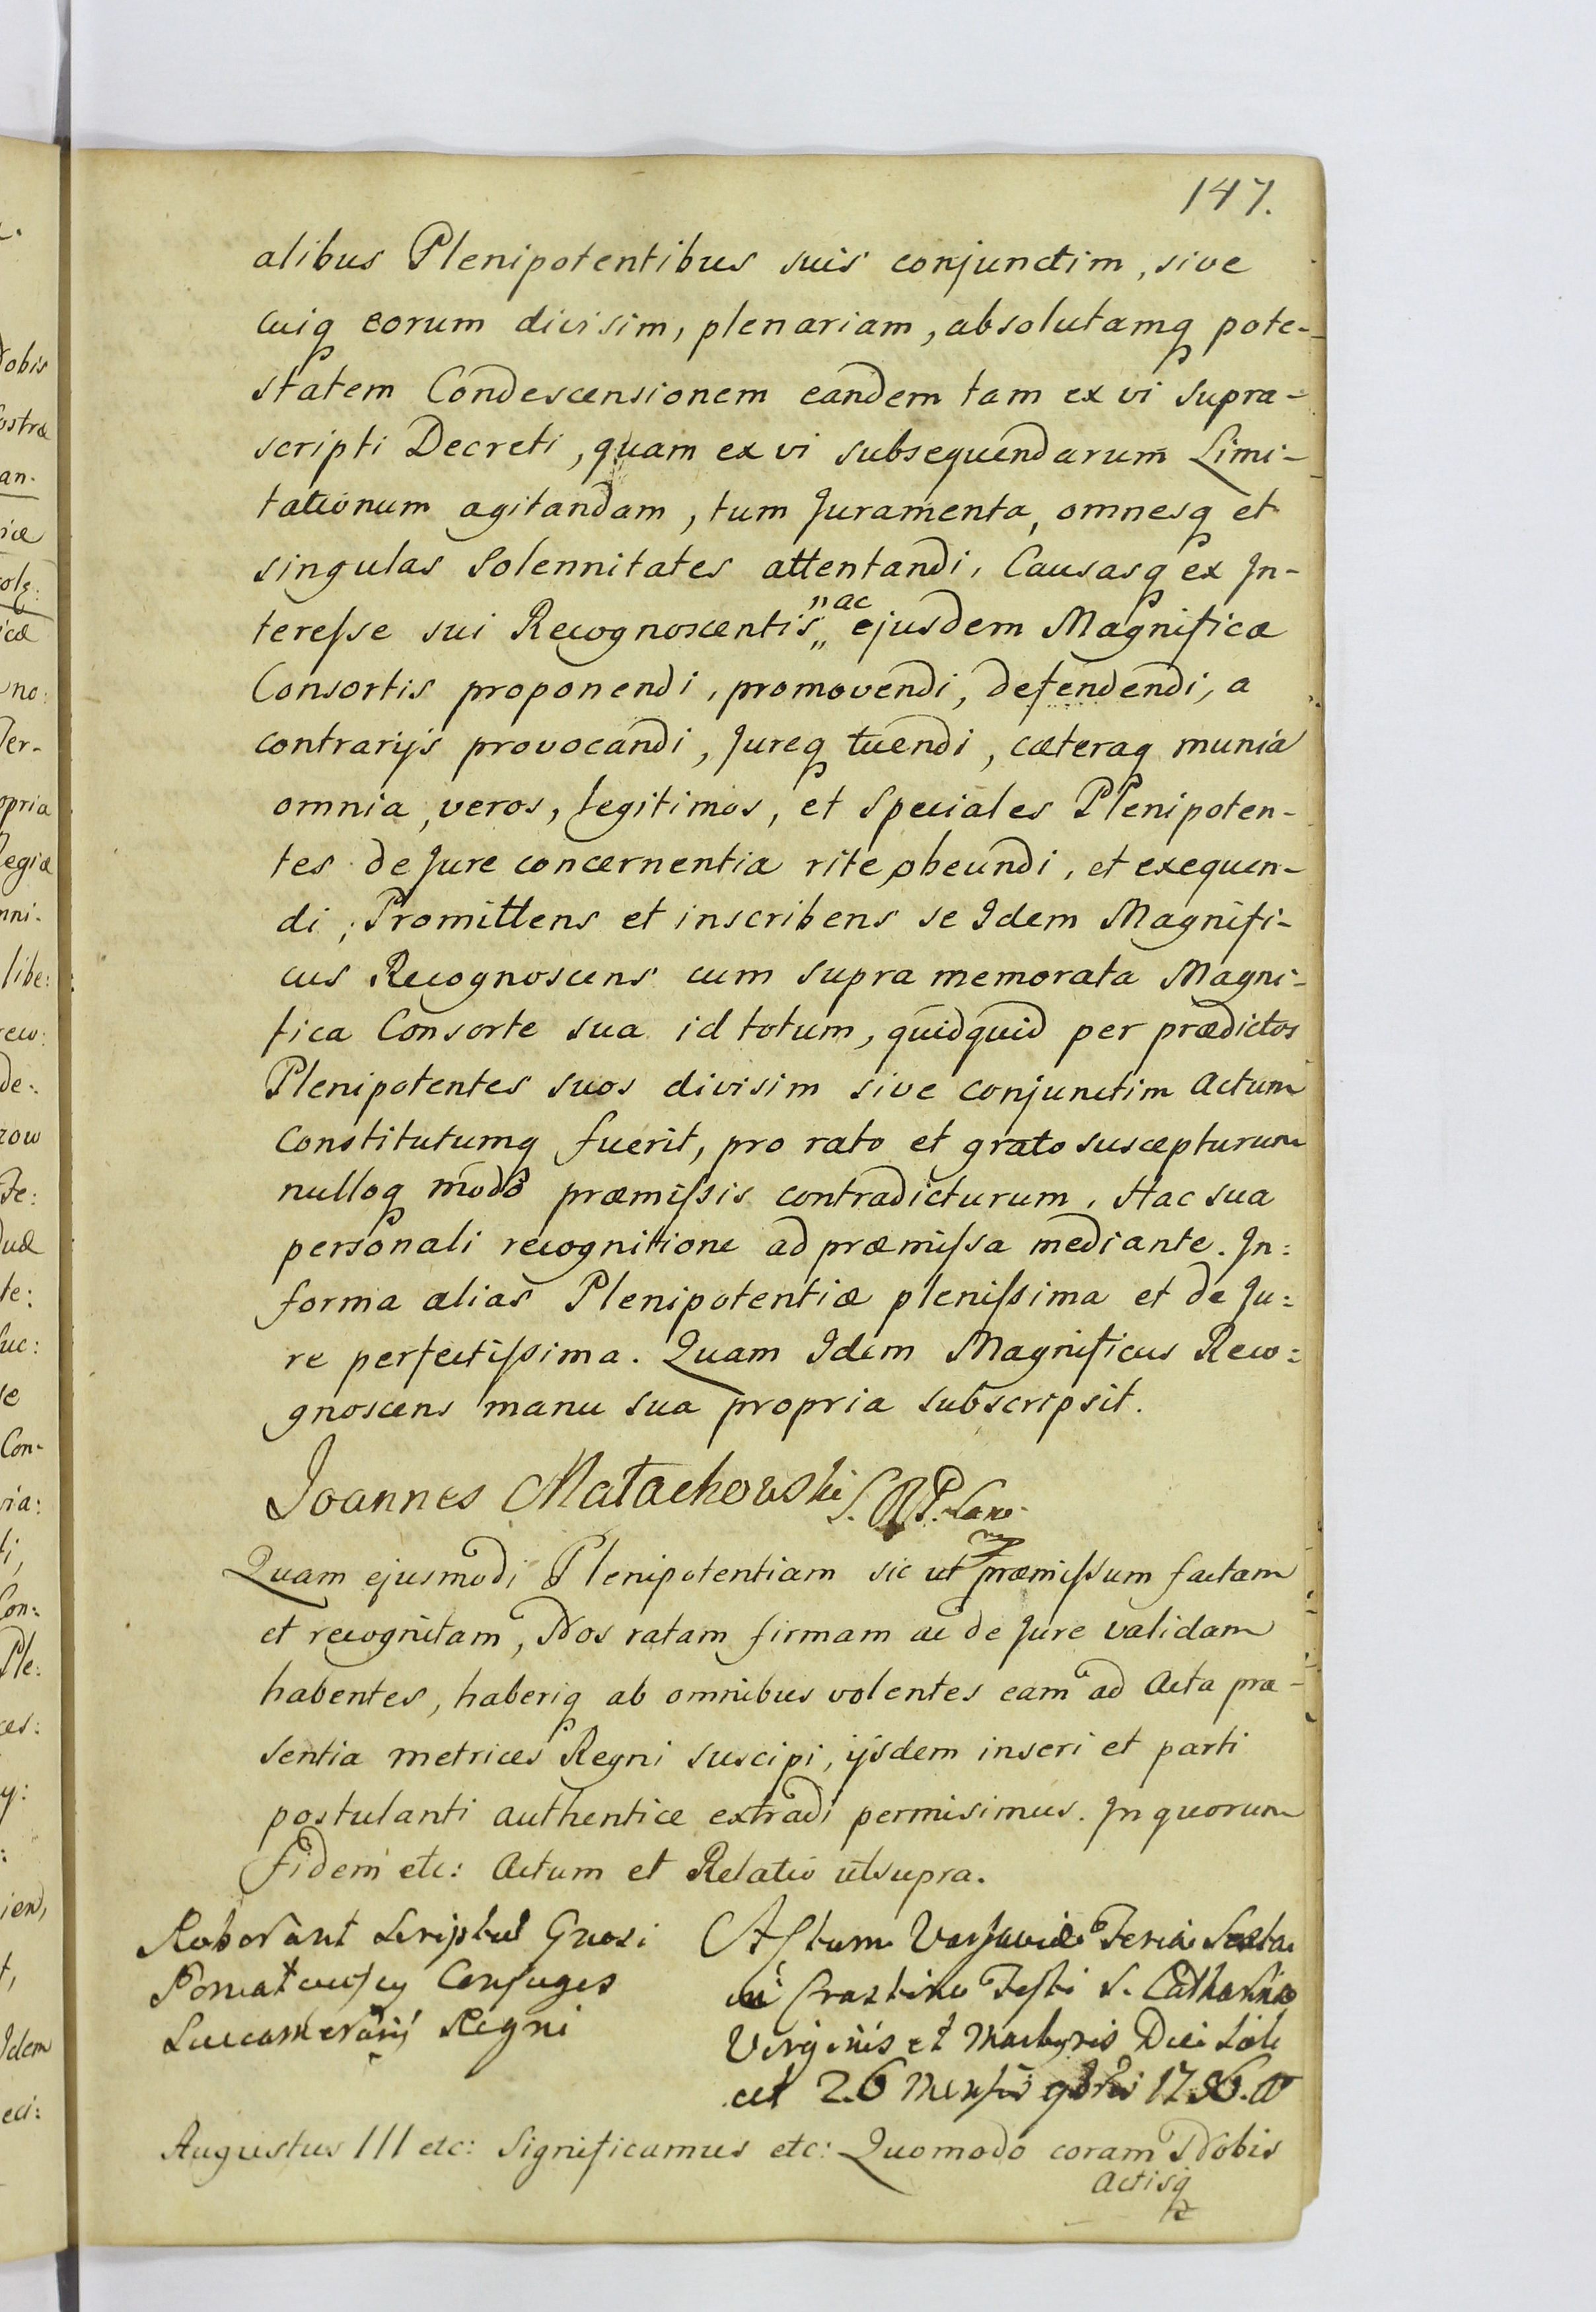 147.
alibus Plenipotentibus suis conjunctim, sive
cuiq eorum divisim, plenariam, absolutamq pote-
statem Condescensionem eandem tam ex vi supra-
scripti Decreti, quam ex vi subsequendarum Limi-
tationum agitandam, tum Juramenta, omnesq et
singulas Solennitates attentandi, Causasq ex In-
teresse sui Recognoscentis „ac„ ejusdem Magnificæ
Consortis proponendi, promovendi, defendendi, a
contrarijs provocandi, Jureq tuendi, cæteraq munia
omnia, veros, legitimos, et Speciales Plenipoten-
tes de Jure concernentia rite obeundi, et exequen-
di; Promittens et inscribens se Idem Magnifi-
cus Recognoscens cum supra memorata Magni-
fica Consorte sua id totum, quidquid per prædictos
Plenipotentes suos divisim sive conjunctim Actum
Constitutumq fuerit, pro rato et grato suscepturum
nulloq modo præmissis contradicturum, Hac sua
personali recognitione ad præmissa mediante. In:
forma alias Plenipotentiæ plenissima et de Ju:
re perfectissima. Quam Idem Magnificus Reco:
gnoscens manu sua propria subscripsit.
Joannes Małachowski S. R. P.
Quam ejusmodi Plenipotentiam sic ut præmissum factam
et recognitam, Nos ratam firmam ac de Jure validam
habentes, haberiq ab omnibus volentes eam ad Acta præ-
sentia metrices Regni suscipi, ijsdem inseri et parti
postulanti authentice extradi permisimus. In quorum
fidem etc: Actum et Relatio utsupra.
Roborant Scriptum Gnosi
Conjuges
Succamerarij Regni
Actum Varsaviæ Feria Sexta
in Crastino Festi S. Catharinæ
Virginis et Martyris Die
26 Mensis 9bris 17
Augustus III etc: Significamus etc: Quomodo coram Nobis
Actisq